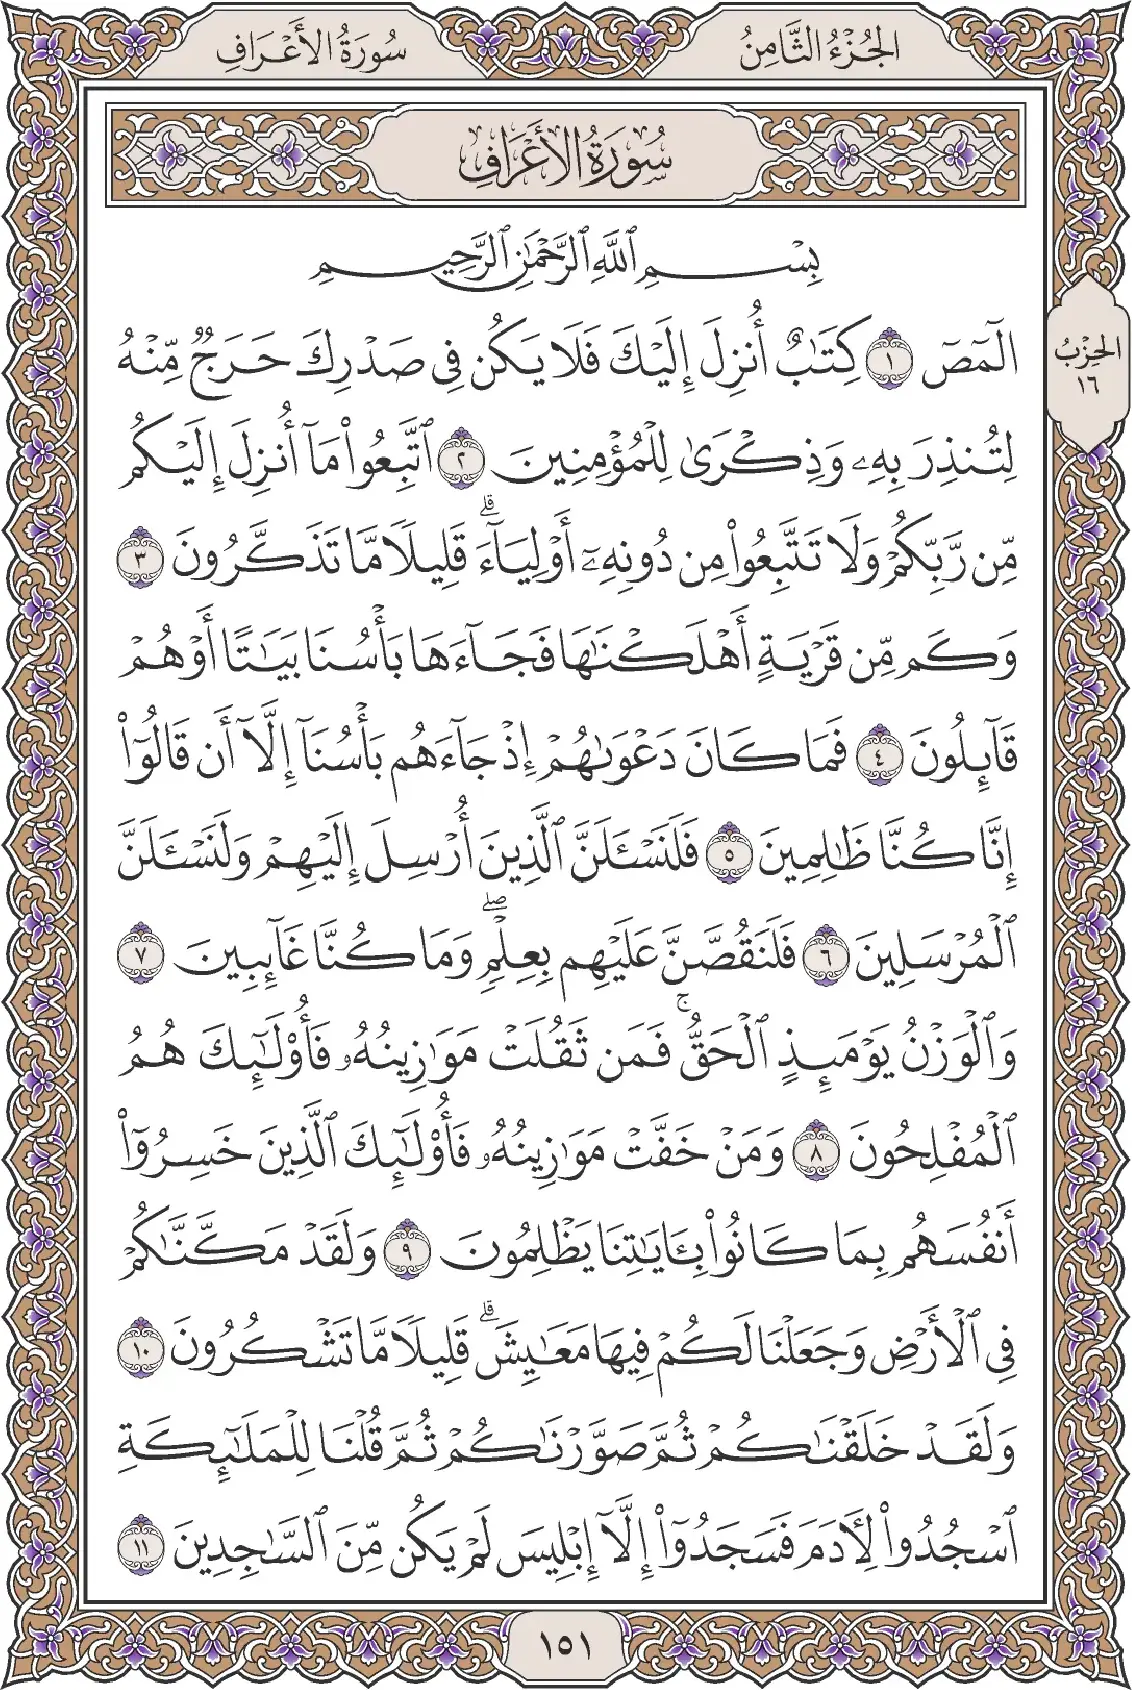 الجُزْءُ الثَّامِنُ
سُورَةُ الأَعْرَافِ
سُورَةُ الأَعْرَافِ
بِسْمِ ٱللَّهِ ٱلرَّحْمَٰنِ ٱلرَّحِيمِ
الٓمٓصٓ ١ كِتَٰبٌ أُنزِلَ إِلَيْكَ فَلَا يَكُن فِى صَدْرِكَ حَرَجٌ مِّنْهُ
الحِزْبُ
١٦
لِتُنذِرَ بِهِۦ وَذِكْرَىٰ لِلْمُؤْمِنِينَ ٢ ٱتَّبِعُوا۟ مَآ أُنزِلَ إِلَيْكُم
مِّن رَّبِّكُمْ وَلَا تَتَّبِعُوا۟ مِن دُونِهِۦٓ أَوْلِيَآءَ ۗ قَلِيلًا مَّا تَذَكَّرُونَ ٣
وَكَم مِّن قَرْيَةٍ أَهْلَكْنَٰهَا فَجَآءَهَا بَأْسُنَا بَيَٰتًا أَوْ هُمْ
قَآئِلُونَ ٤ فَمَا كَانَ دَعْوَىٰهُمْ إِذْ جَآءَهُم بَأْسُنَآ إِلَّآ أَن قَالُوٓا۟
إِنَّا كُنَّا ظَٰلِمِينَ ٥ فَلَنَسْـَٔلَنَّ ٱلَّذِينَ أُرْسِلَ إِلَيْهِمْ وَلَنَسْـَٔلَنَّ
ٱلْمُرْسَلِينَ ٦ فَلَنَقُصَّنَّ عَلَيْهِم بِعِلْمٍ ۖ وَمَا كُنَّا غَآئِبِينَ ٧
وَٱلْوَزْنُ يَوْمَئِذٍ ٱلْحَقُّ ۚ فَمَن ثَقُلَتْ مَوَٰزِينُهُۥ فَأُو۟لَٰٓئِكَ هُمُ
ٱلْمُفْلِحُونَ ٨ وَمَنْ خَفَّتْ مَوَٰزِينُهُۥ فَأُو۟لَٰٓئِكَ ٱلَّذِينَ خَسِرُوٓا۟
أَنفُسَهُم بِمَا كَانُوا۟ بِـَٔايَٰتِنَا يَظْلِمُونَ ٩ وَلَقَدْ مَكَّنَّٰكُمْ
فِى ٱلْأَرْضِ وَجَعَلْنَا لَكُمْ فِيهَا مَعَٰيِشَ ۗ قَلِيلًا مَّا تَشْكُرُونَ ١٠
وَلَقَدْ خَلَقْنَٰكُمْ ثُمَّ صَوَّرْنَٰكُمْ ثُمَّ قُلْنَا لِلْمَلَٰٓئِكَةِ
ٱسْجُدُوا۟ لِـَٔادَمَ فَسَجَدُوٓا۟ إِلَّآ إِبْلِيسَ لَمْ يَكُن مِّنَ ٱلسَّٰجِدِينَ ١١
١٥١